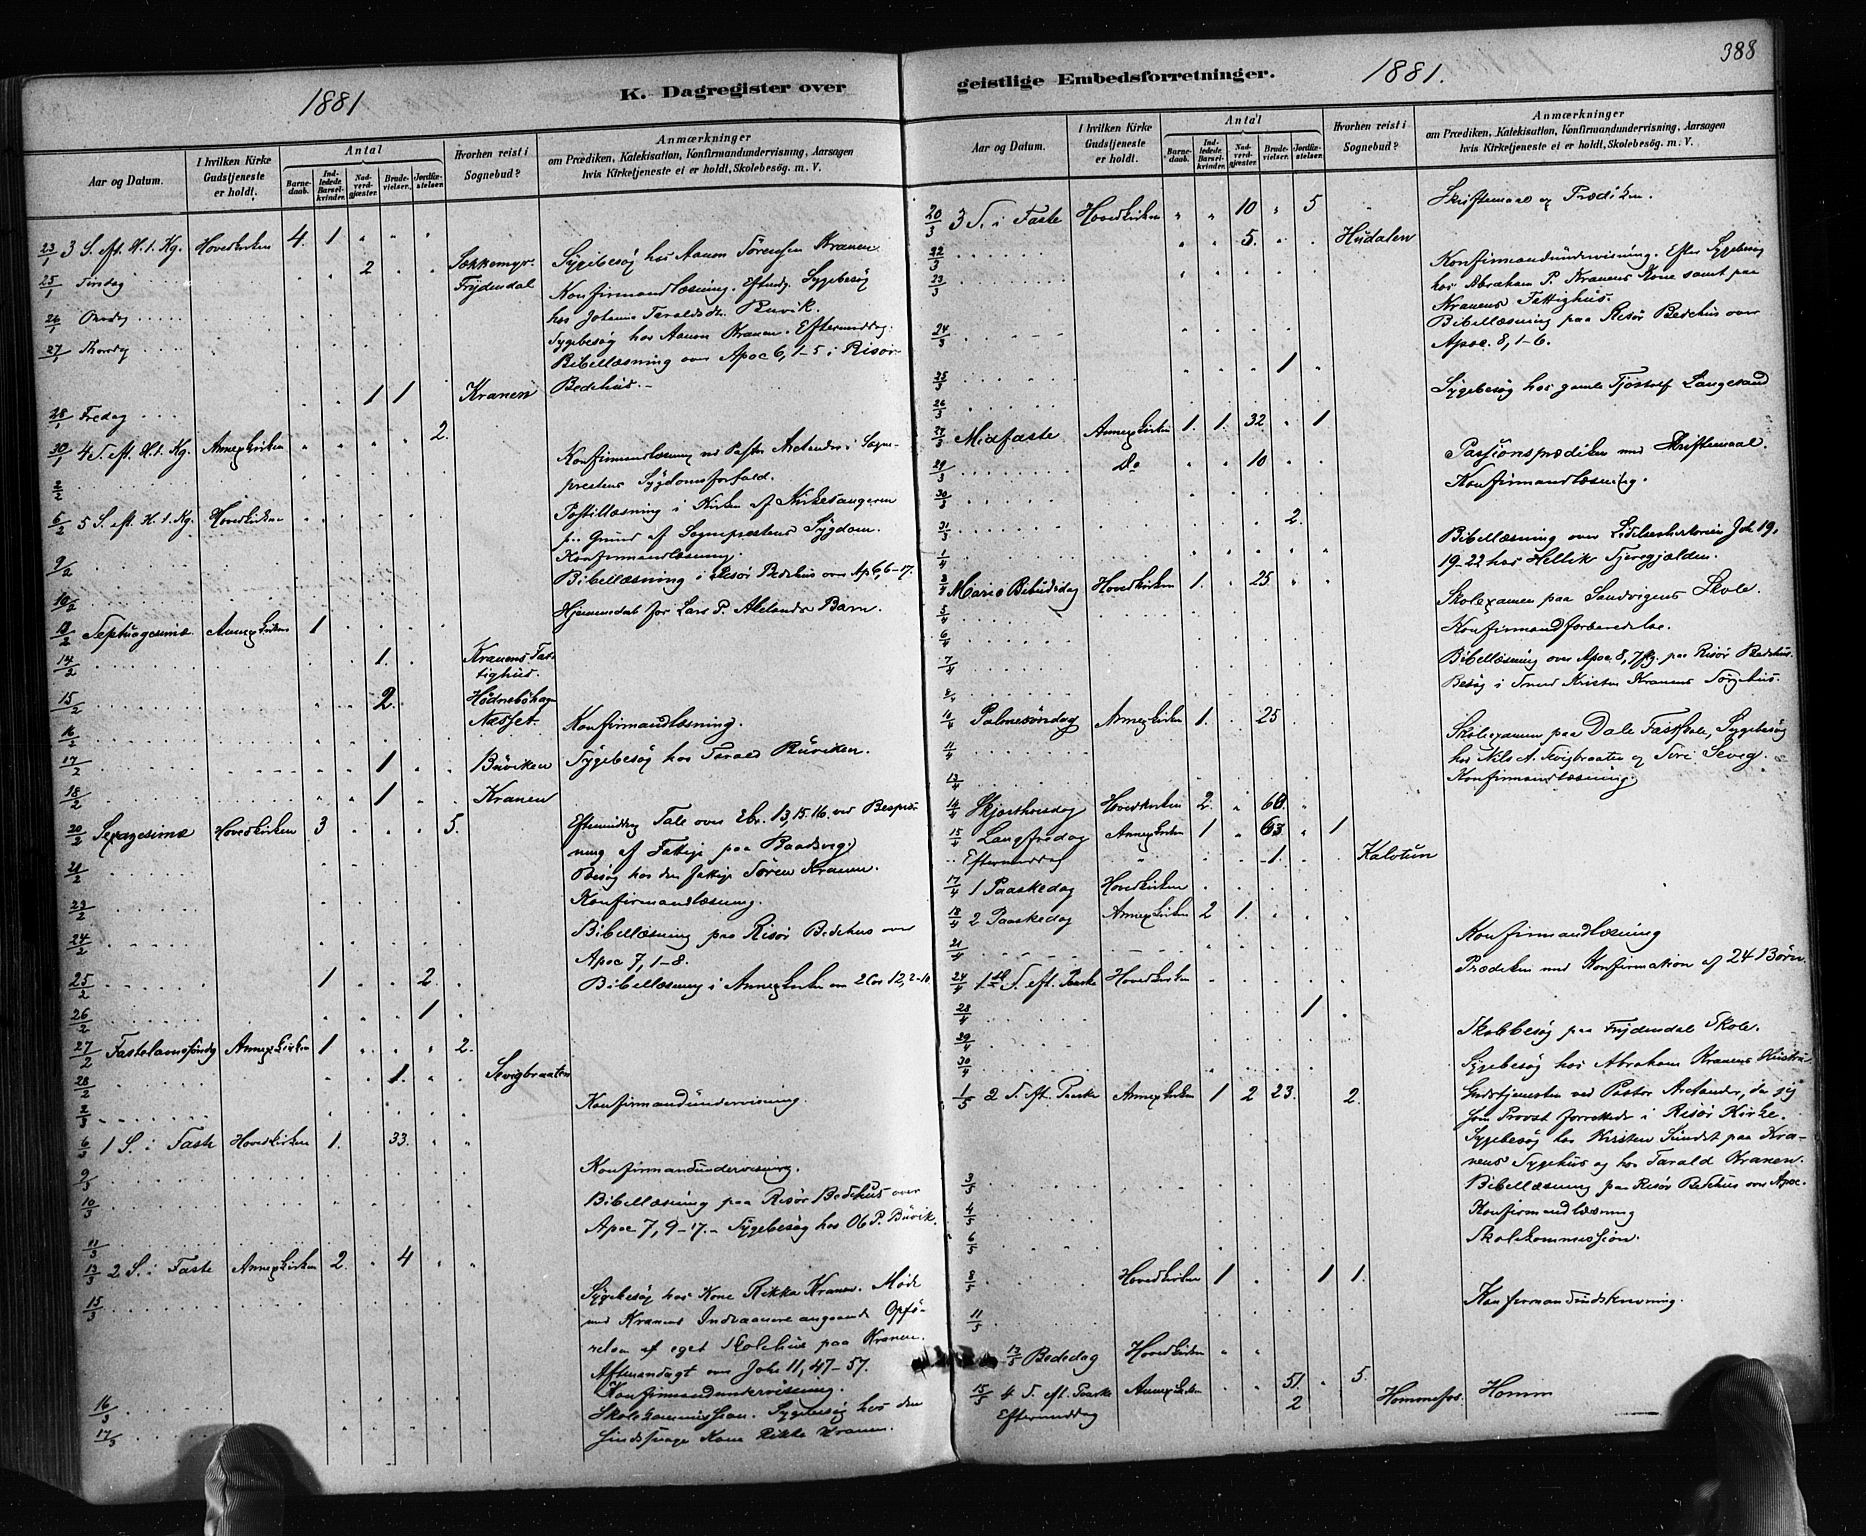 1881
K. Dagregister over
Aar og Datum.
I hvilken Kirke Gudstjeneste er holdt.
Antal
Barnedaab.
Indledede Barselkvinder.
Nadverdgjester.
Brudevielser.
Jordfæstelser.
Hvorhen reist i Sognebud?
Anmærkninger
om Prædiken, Katekisation, Konfirmandundervisning, Aarsagen
hvis Kirketjeneste ei er holdt, Skolebesøg. m. V.
23/1 3 S. eft. H. t. Kg. Hovedkirken 4. 1 " " "
25/1 Tirsdag 2 Sykkemyr. Sygebesøg hos Aanon Sørensen Kranen
Frydendal Konfirmandlæsning. Efterm. Sygebesøg
26/1 Onsdag hos Johanne Taraldsdtr Buvik.
27/1 Thorsdg Sygebesøg hos Aanon Kranen. Eftermiddag:
Bibellæsning over Apoc 6, 1-5 i Risør
28/1 Fredag 1 1 Kranen Bedehus.-
30/1 4 S. eft. H. t. Kg. Annexkirken " " " " 2.
2/2 Konfirmandlæsning ved Pastor Arctander i Sogne-
prestens Sygdomsforfald.
6/2 5 S. eft. H. t. Kg. Hovedkirken Postillæsning i Kirken af Kirkesangeren
p. Grund af Sogneprestens Sygdom.
9/2 Konfirmandlæsning.
10/2 Bibellæsning i Risør Bedehus over Ap 6, 6-17.
Hjemmedøbt for Lars P. Barn.
13/2 Septuagesima Annexkirken 1
14/2 1. Kranens Fat-
tighus.
15/2 2. Hødnebøhagen
Næsset.
16/2 Konfirmandlæsning.
17/2 1 Büviken Sygebesøg hos Tarald Büviken.
18/2 1 Kranen
20/2 Sexagesima Hovedkirken 3 5. Eftermiddag Tale over Ebr. 13, 15. 16. ved Bespis-
ning af Fattige paa Baadsvig.
21/2 Besøg hos den fattige Søren Kranen.
23/2 Konfirmandlæsning.
24/2 Bibellæsning paa Risør Bedehus over
Apoc 7, 1-8.
25/2 1 2. Bibellæsning i Annexkirken over 2 Cor 12, 2-10
26/2 1
27/2 Fastelavnssöndg Annexkirken 1 2.
28/2 1. Sevigbraaten
2/3 Konfirmandundervisning.
6/3 1 S. i Faste Hovedkirken 1. 33.
9/3 Konfirmandundervisning.
10/3 Bibellæsning paa Risør Bedehus over
Apoc 7, 9-17. - Sygebesøg hos Ob P. Büvik.
11/3
13/3 2 S. i Faste Annexkirken 2. 4
15/3 Sygebesøg hos Kone Rikka Kranen. Møde
med Kranens Indvaanere angaaende Opfø-
relsen af eget Skolehus paa Kranen.
Aftensandagt over Joh. 11, 47-57.
16/3 Konfirmandundervisning.
17/3 Skolekommission. Sygebesøg hos den
sindssvage Kone Rikke Kranen.
geistlige Embedsforretninger.
1881.
388
Aar og Datum.
I hvilken Kirke Gudstjeneste er holdt.
Antal
Barnedaab.
Indledede Barselkvinder.
Nadverdgjester.
Brudevielser.
Jordfæstelser.
Hvorhen reist i Sognebud?
Anmærkninger
om Prædiken, Katekisation, Konfirmandundervisning, Aarsagen
hvis Kirketjeneste ei er holdt, Skolebesøg. m. V.
20/3 3 S. i Faste Hovedkirken " " 10 " 5 Skriftemaal og Prædiken.
22/3 5. Hudalen
23/3 Konfirmandundervisning. Efter Sygebesøg
hos Abraham P. Kranens Kone samt paa
Kranens Fattighus.
24/3 Bibellæsning paa Risør Bedehus over
Apoc. 8, 1-6.
25/3 1
26/3 Sygebesøg hos gamle Tjøstolf Langesand
27/3 Midfaste Annexkirken 1. 1. 32 " 1
29/3 Do " " 10 Passionsprædiken med Skriftemaal.
30/3 Konfirmandlæsning.
31/3 2.
1/4 Bibellæsning over Lidelseshistorien Joh 19,
19-22 hos Hellik Fjeregjælden.
3/4 Mariæ Bebudsdag Hovedkirken 1. " 25
5/4 Skolexamen paa Sandvigens Skole.
6/4 Konfirmandforberedelse.
7/4 Bibellæsning over Apoc 8, 7 flg. paa Risør Bedehus.
8/4 Besøg i Kristen Kranens Sørgehus.
10/4 Palmesöndag Annexkirken 1. 25
11/4 Skolexamen paa Dale Fastskole, Sygebesøg
hos Nils A. Sevigbraaten og Tore Sevig.
13/4 Konfirmandlæsning.
14/4 Skjærthorsdag Hovedkirken 2. " 60.
15/4 Langfredag Annexkirken 1 " 63 " 1
" Eftermiddag 1. Kalstun
17/4 1 Paaskedag Hovedkirken
18/4 2 Paaskedag Annexkirken 2 1.
21/4 Konfirmandlæsning
24/4 1ste S. eft. Paaske Hovedkirken Prædiken med Konfirmation af 24 Börn.
28/4 1
29/4 Skolebesøg paa Frydendal Skole.
30/4 Sygebesøg hos Abraham Kranens Hustru
1/5 2 S. eft. Paaske Annexkirken 1 2 23. 2. Gudstjenesten ved Pastor Arctander, da jeg
som Provst forrettede i Risør Kirke.
Sygebesøg hos Kirsten Sundet paa Kra-
nens Sygehus og hos Tarald Kranen.
3/5 Bibellæsning paa Risør Bedehus over Apoc.
4/5 Konfirmandlæsning
6/5 Skolekommission.
8/5 Hovedkirken 1 1 1.
11/5 Konfirmandindskrivning.
13/5 Bededag Hovedkirken " "
15/5 4 S. eft. Paaske Annexkirken 51 5.
Eftermiddag 2 Hommefos. Homm